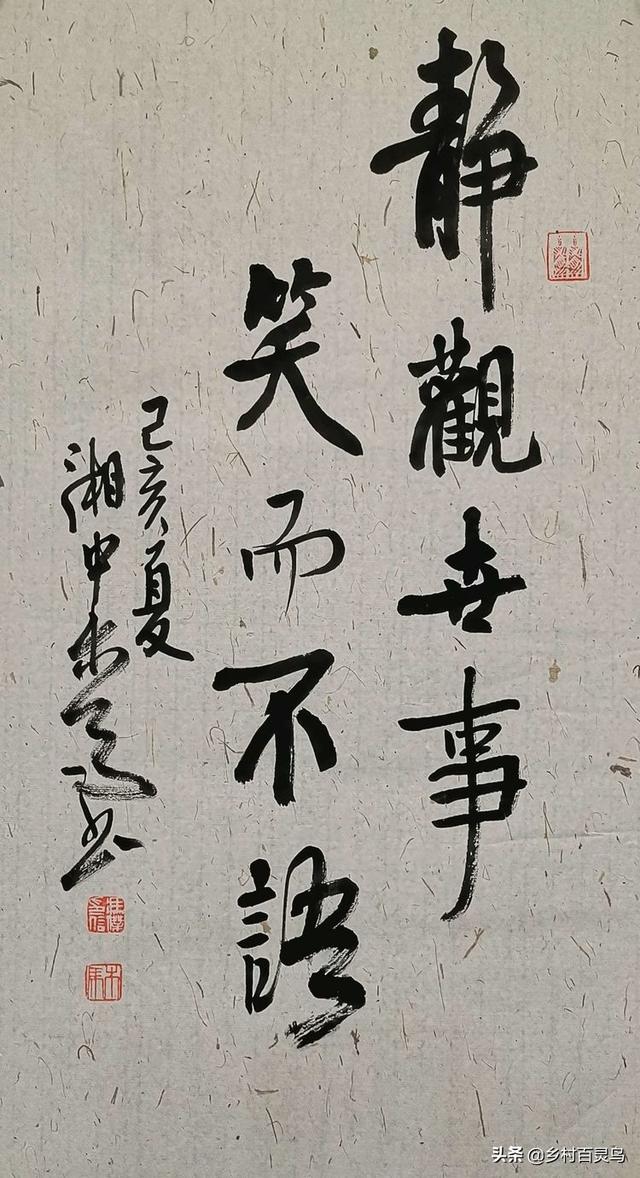 靜觀世事
笑而不語
己亥夏
湘中木
書
头条 @乡村百灵鸟